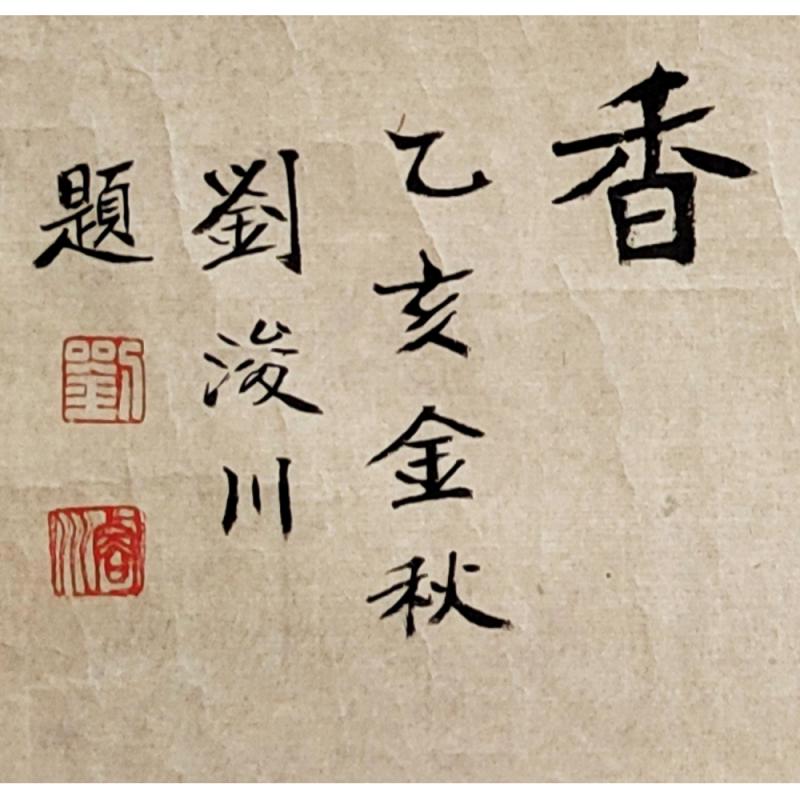 香
乙亥金秋
劉浚川
題
劉